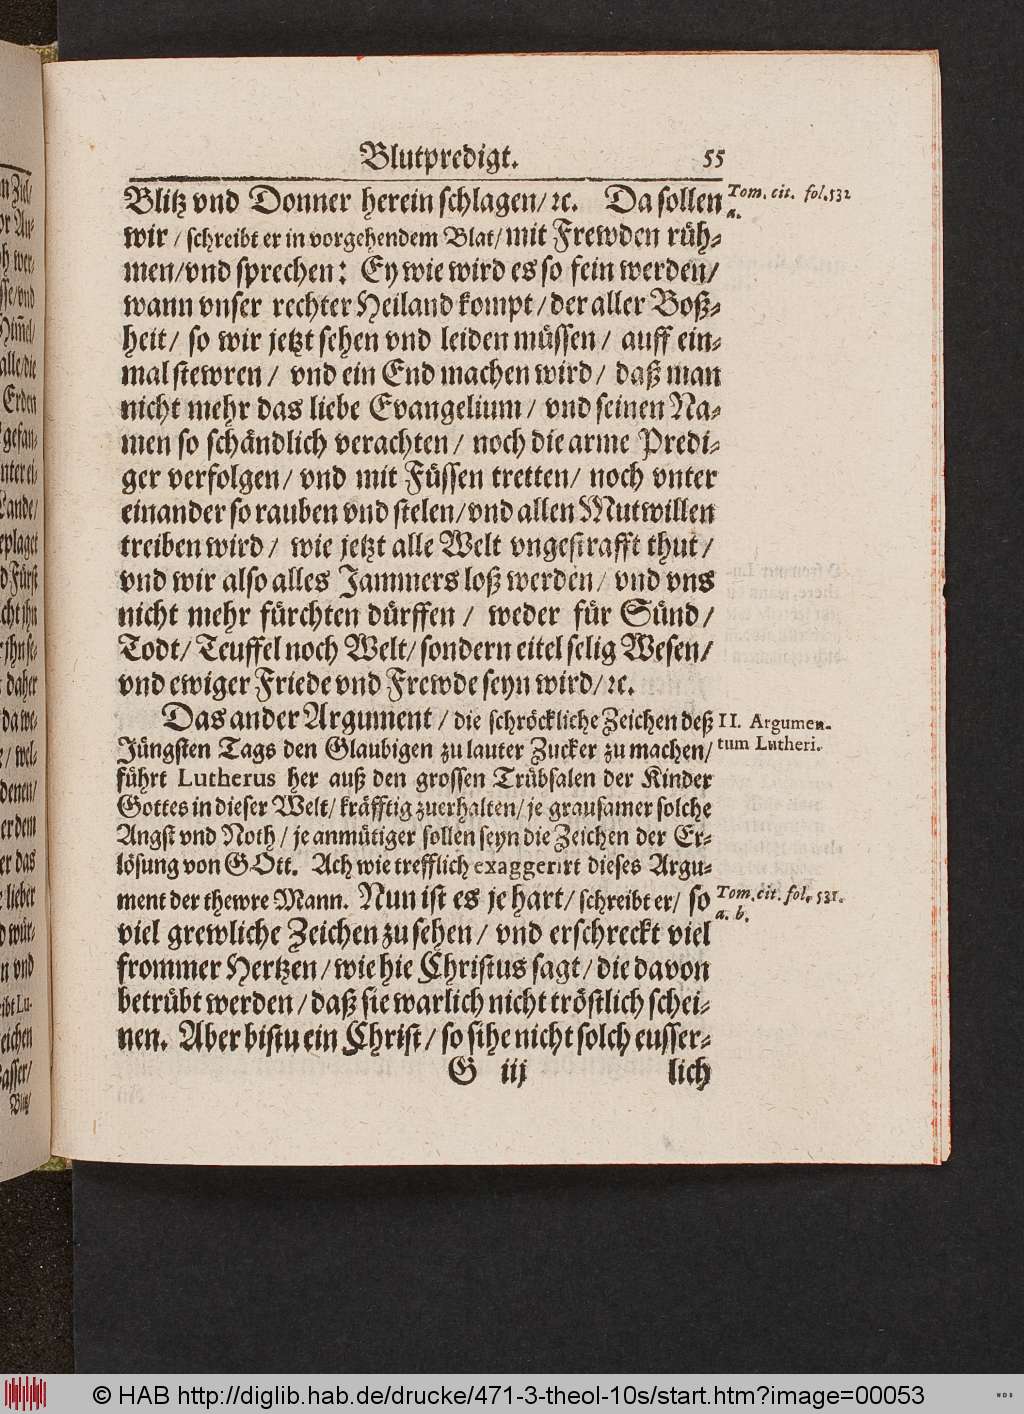 Blutpredigt. 55
Blitz vnd Donner herein schlagen/ ꝛc. Da sollen
wir / schreibt er in vorgehendem Blat/ mit Frewden rüh-
men/vnd sprechen: Ey wie wird es so fein werden/
wann vnser rechter Heiland kompt/ der aller Boß-
heit/ so wir jetzt sehen vnd leiden müssen/ auff ein-
mal stewren / vnd ein End machen wird/ daß man
nicht mehr das liebe Evangelium/ vnd seinen Na-
men so schändlich verachten/ noch die arme Predi-
ger verfolgen/ vnd mit Füssen tretten/ noch vnter
einander so rauben vnd stelen/vnd allen Mutwillen
treiben wird/ wie jetzt alle Welt vngestrafft thut/
vnd wir also alles Jammers loß werden/ vnd vns
nicht mehr fürchten dürffen / weder für Sünd/
Todt/ Teuffel noch Welt/ sondern eitel selig Wesen/
vnd ewiger Friede vnd Frewde seyn wird/ꝛc.
Das ander Argument / die schröckliche Zeichen deß
Jüngsten Tags den Glaubigen zu lauter Zucker zu machen/
führt Lutherus her auß den grossen Trübsalen der Kinder
Gottes in dieser Welt/ kräfftig zuerhalten/ je grausamer solche
Angst vnd Noth / je anmütiger sollen seyn die Zeichen der Er-
lösung von GOtt. Ach wie trefflich exaggerirt dieses Argu-
ment der thewre Mann. Nun ist es je hart/ schreibt er/ so
viel grewliche Zeichen zu sehen/ vnd erschreckt viel
frommer Hertzen/ wie hie Christus sagt/ die davon
betrübt werden/ daß sie warlich nicht tröstlich schei-
nen. Aber bistu ein Christ/ so sihe nicht solch eusser-
G iij lich
Tom. cit. fol.532
a.
II. Argumen-
tum Lutheri.
Tom. cit. fol. 531.
a. b.
© HAB http://diglib.hab.de/drucke/471-3-theol-10s/start.htm?image=00053